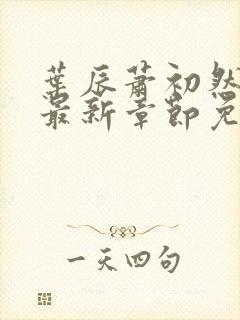 葉辰蕭初然
最新章節免
一天四句